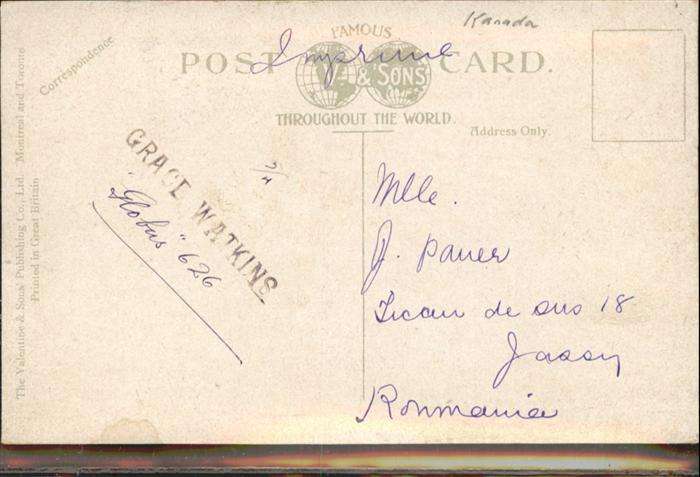 Kanada
FAMOUS
POST CARD.
Imprimé
V. & SONS
THROUGHOUT THE WORLD
Correspondence
Address Only.
GRACE WATKINS
"Globus" 626
Mlle.
J. Pauer
Ticau de sus 18
Jassy
Roumania
The Valentine & Sons' Publishing Co., Ltd. Montreal and Toronto
Printed in Great Britain